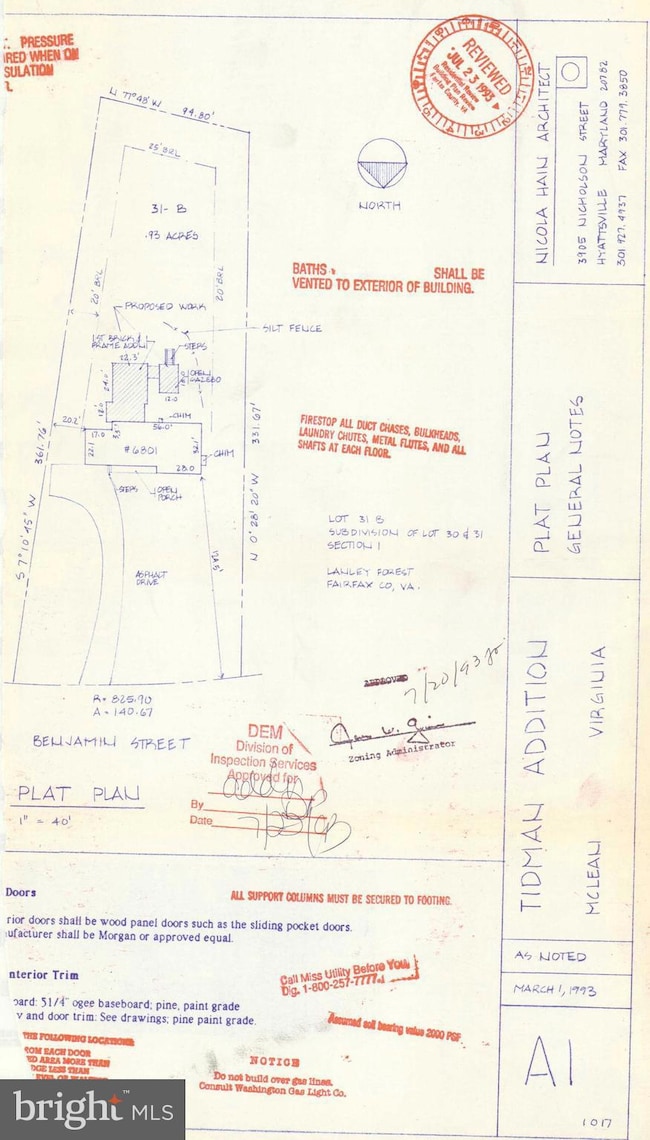 PRESSURE
RED WHEN ON
SULATION
REVIEWED
JUL 23 1993
Fairfax County, VA
N 77°48' W 94.80'
25' BRL
31-B
.93 ACRES
20' BRL
20' BRL
NORTH
PROPOSED WORK
SILT FENCE
1ST BRICK &
FRAME ADDN
STEPS
22.3'
OPEN
GAZEBO
24.0'
12.0
CHIM
56.0'
20.2'
17.0
22.1
#6801
28.0
CHIM
STEPS
OPEN
PORCH
361.76'
S 7°10'45" W
331.67'
N 0°28'20" W
ASPHALT
DRIVE
R= 825.90
A= 140.67
BENJAMIN STREET
PLAT PLAN
1" = 40'
BATHS SHALL BE
VENTED TO EXTERIOR OF BUILDING.
FIRESTOP ALL DUCT CHASES, BULKHEADS,
LAUNDRY CHUTES, METAL FLUTES, AND ALL
SHAFTS AT EACH FLOOR.
LOT 31 B
SUBDIVISION OF LOT 30 & 31
SECTION 1
LANLEY FOREST
FAIRFAX CO, VA.
APPROVED
7/20/93
Zoning Administrator
DEM
Division of
Inspection Services
Approved for
By
Date
NICOLA HAIN ARCHITECT
3905 NICHOLSON STREET
HYATTSVILLE MARYLAND 20782
301 927.4937 FAX 301.779.3850
PLAT PLAN
GENERAL NOTES
TIDMAN ADDITION
MCLEAN VIRGINIA
AS NOTED
MARCH 1, 1993
A1
1 OF 17
Doors
ALL SUPPORT COLUMNS MUST BE SECURED TO FOOTING.
rior doors shall be wood panel doors such as the sliding pocket doors.
ufacturer shall be Morgan or approved equal.
nterior Trim
oard: 51/4" ogee baseboard; pine, paint grade
v and door trim: See drawings; pine paint grade.
Call Miss Utility Before You
Dig. 1-800-257-7777
Assumed soil bearing value 2000 PSF
THE FOLLOWING LOCATIONS:
ROM EACH DOOR
ED AREA MORE THAN
DGE LESS THAN
NOTICE
Do not build over gas lines.
Consult Washington Gas Light Co.
bright MLS